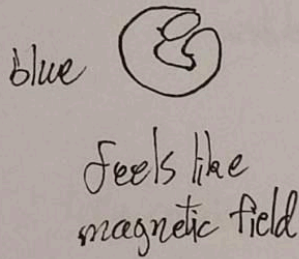 blue
feels like
magnetic field